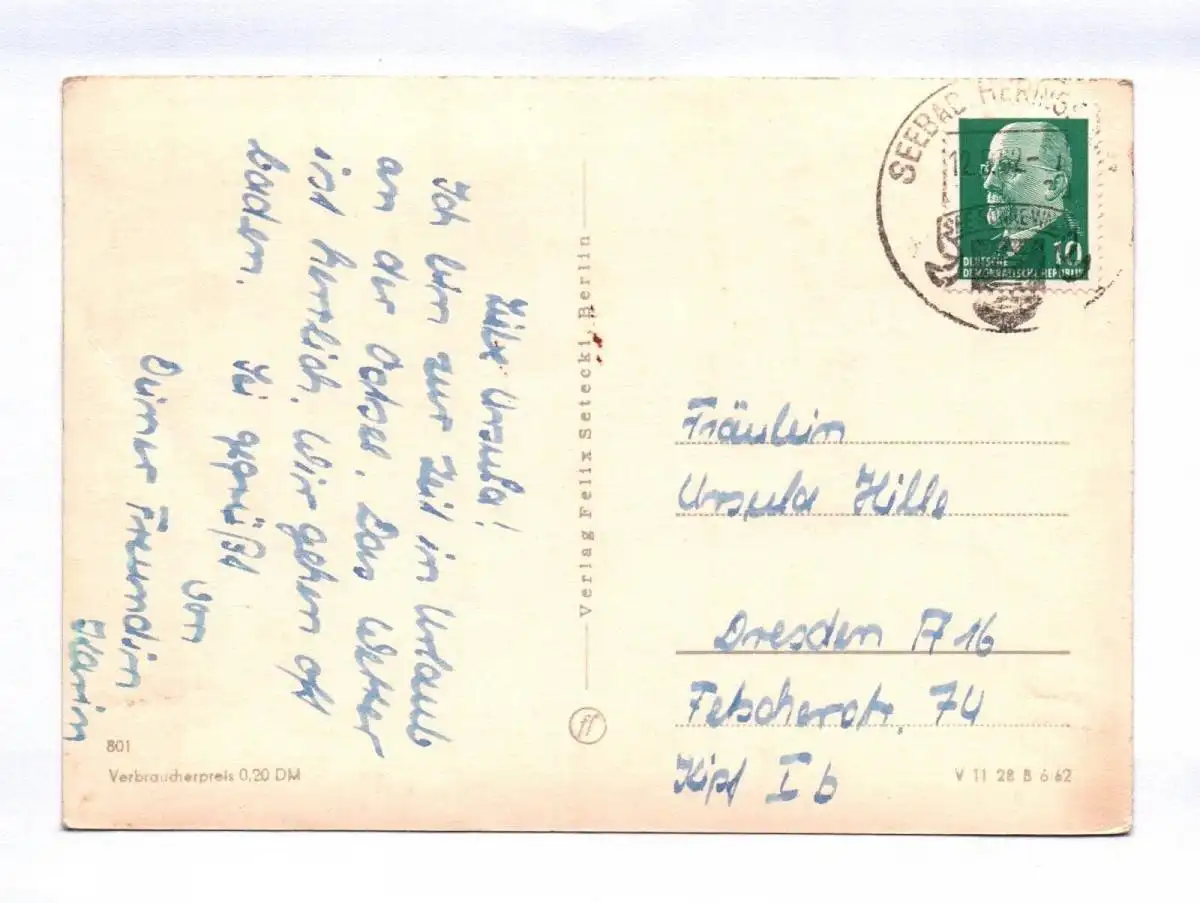 Liebe Ursula!
Ich bin zur Zeit in Urlaub
an der Ostsee. Das Wetter
ist herrlich. Wir gehen oft
baden. Sei gegrüßt
von
Deiner Freundin
Karin
801
Verbraucherpreis 0,20 DM
Verlag Felix Setecki, Berlin
SEEBAD HERINGS
12.8.62
10
DEUTSCHE
DEMOKRATISCHE REPUBLIK
Fräulein
Ursula Hille
Dresden A 16
Fetscherstr. 74
Kipf I b
V 11 28 B 6 62